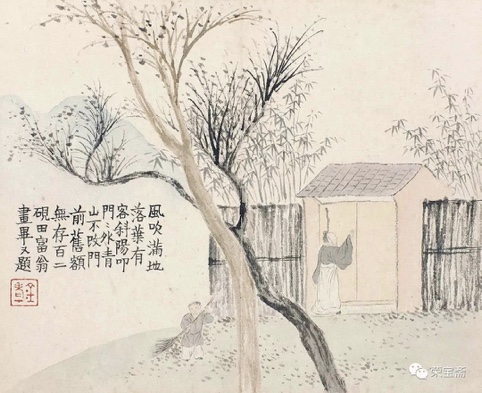 風吹滿地
落葉有
客斜陽叩
門〻外青
山不改門
前舊額
無存百二
硯田富翁
畫畢又題
荣宝斋